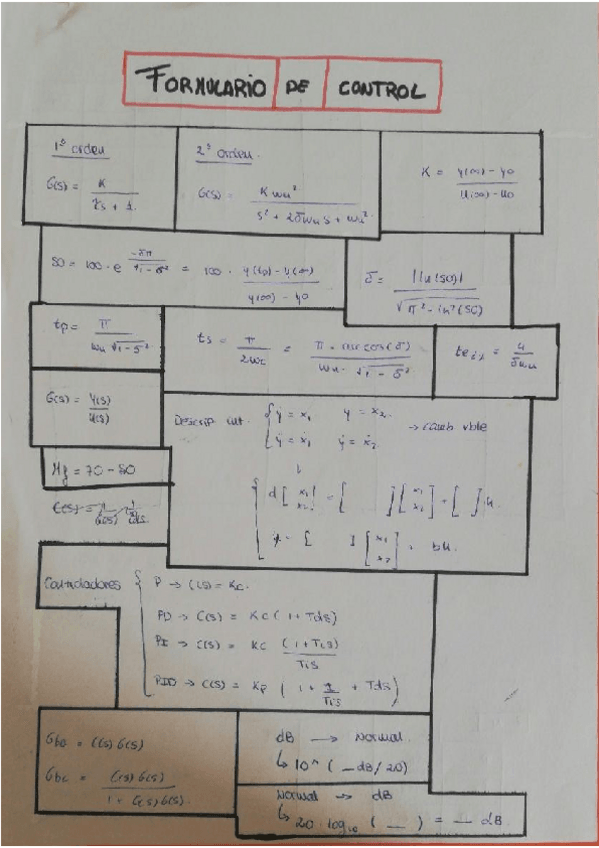 FORMULARIO DE CONTROL
1º orden
G(s) = K / (τs + 1)
2º orden.
G(s) = K ωn² / (s² + 2δωn s + ωn²)
K = (y(∞) - y0) / (u(∞) - u0)
SO = 100 · e^(-δπ / √(1-δ²)) = 100 · (y(tp) - y(∞)) / (y(∞) - y0)
δ = |ln(SO)| / √(π² - ln²(SO))
tp = π / (ωn √(1-δ²))
ts = π / 2ωc = (π - arccos(δ)) / (ωn · √(1-δ²))
= 4 / (δωn)
G(s) = Y(s) / U(s)
DESCRIP int. { y = x1 y = x2 → camb vble
ẏ = ẋ1 ẏ = ẋ2
↓
{ d [x1 x2] = [ ] [x1 x2] + [ ] u.
[ ] [x1 x2] + bu.
Mf = 70 - 80
Controladores { P → C(s) = Kc.
PD → C(s) = Kc (1 + Tds)
PI → C(s) = Kc (1 + Tis) / Tis
PID → C(s) = Kp (1 + 1/Tis + Tds)
Gba = C(s) G(s)
Gbc = C(s) G(s) / (1 + C(s) G(s)).
dB → Normal.
↳ 10^ ( _ dB / 20)
Normal → dB
↳ 20 · log10 ( __ ) = __ dB.